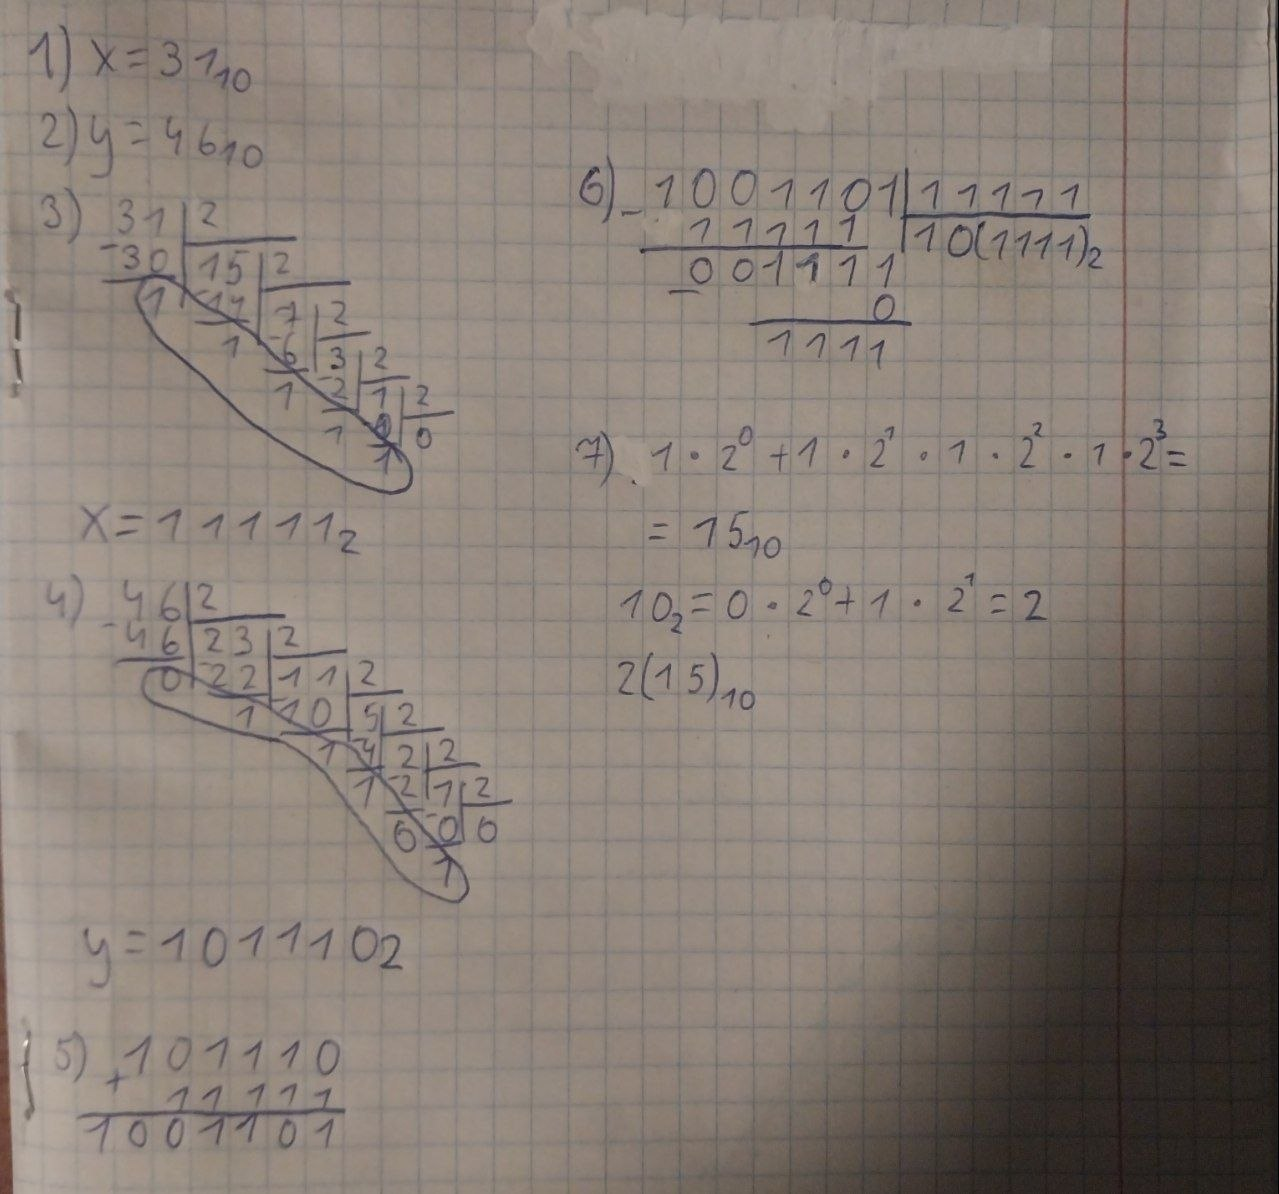 1) x = 31₁₀
2) y = 46₁₀
3) 31 | 2
-30 | 15 | 2
1 -14 | 7 | 2
1 -6 | 3 | 2
1 -2 | 1 | 2
1 0 | 0
1
x = 11111₂
4) 46 | 2
-46 | 23 | 2
0 -22 | 11 | 2
1 -10 | 5 | 2
1 -4 | 2 | 2
1 -2 | 1 | 2
0 -0 | 0
1
y = 101110₂
5) 101110
+ 11111
1001101
6) -1001101 | 11111
11111 | 10(1111)₂
- 001111
0
1111
7) 1 · 2⁰ + 1 · 2¹ · 1 · 2² · 1 · 2³ =
= 15₁₀
10₂ = 0 · 2⁰ + 1 · 2¹ = 2
2(15)₁₀